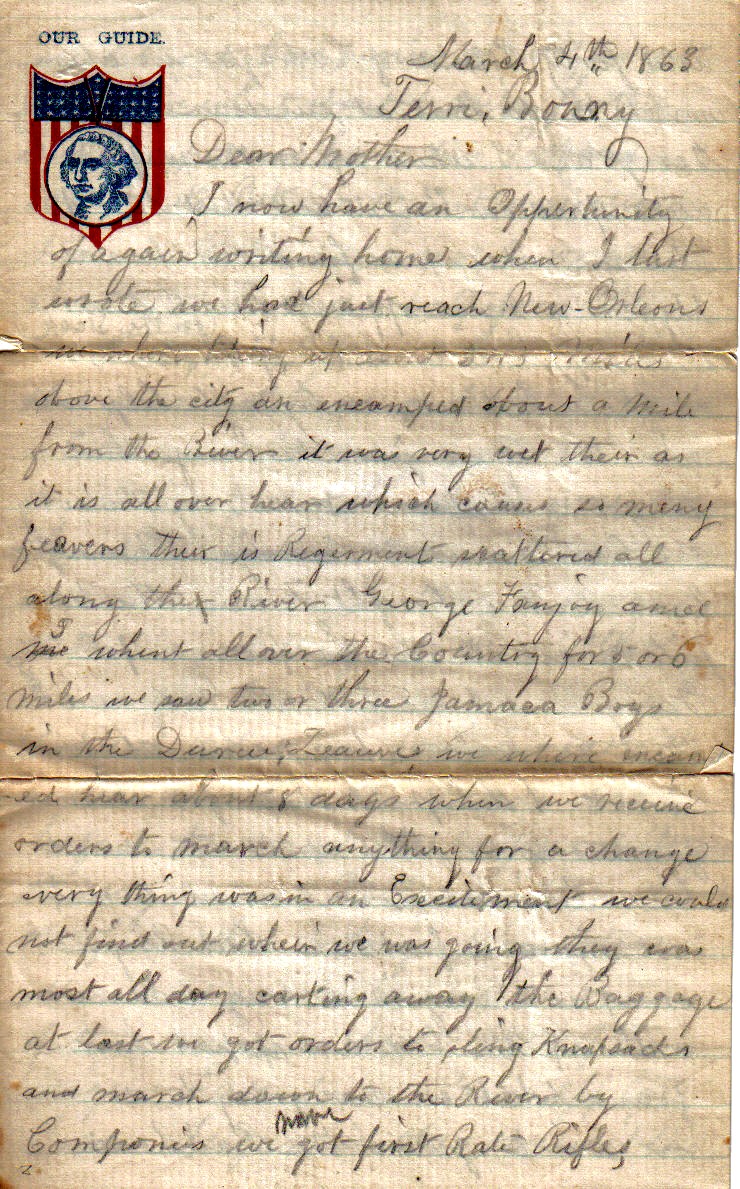 OUR GUIDE.
March 4th 1863
Terri, Bonny
Dear Mother
I now have an Oppertunity
of again writing home when I last
wrote we had just reach New-Orleans
up about Miles
above the city an encamped about a Mile
from the River it was very wet their as
it is all over hear which causes so meny
feavers their is Regerment scattered all
along the River George Fanjoy and
me whent all over the Country for 5 or 6
miles we saw two or three Jamaca Boys
in the we where encam
ed hear about 8 days when we receive
orders to march anything for a change
every thing was in an Excitement we could
not find out wheir we was going they was
most all day carting away the Baggage
at last we got orders to sling Knapsacks
and march down to the River by
Companies we have got first Rate Rifles